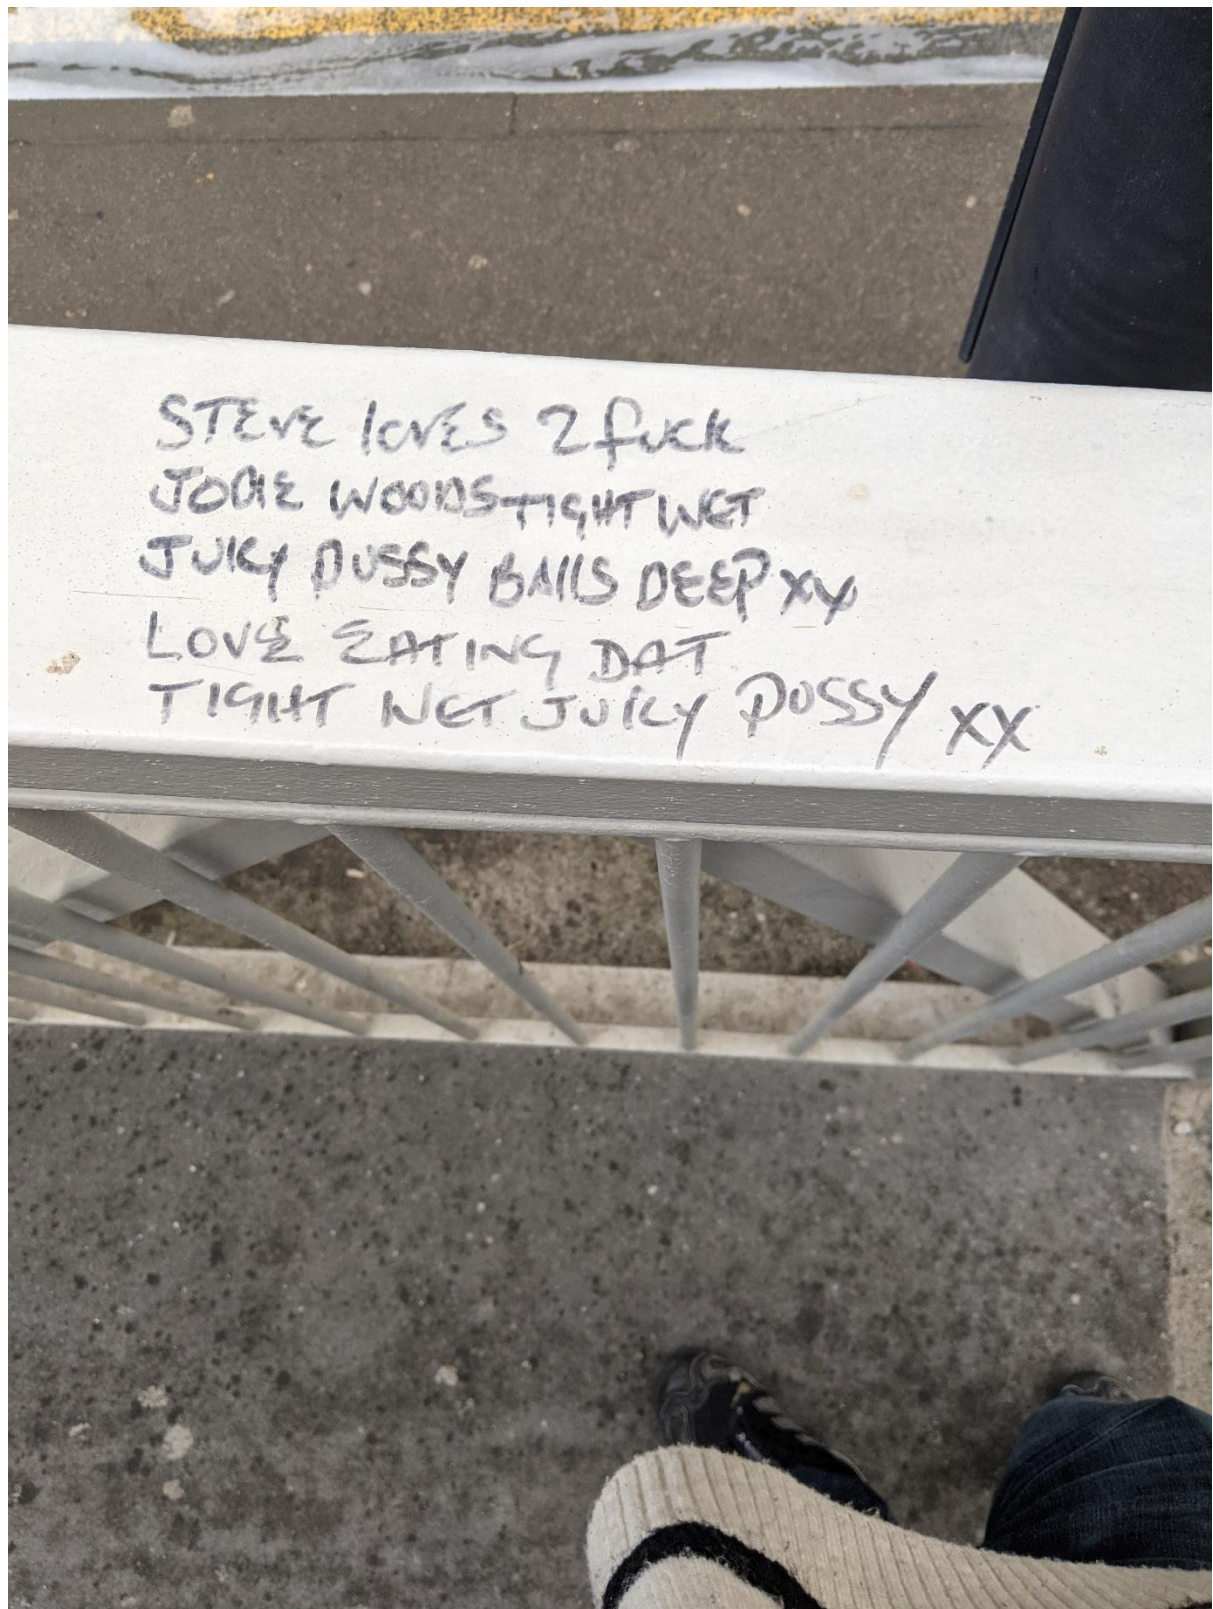 STEVE loVES 2 fuck
JODIE WOODS TIGHT WET
JUICY PUSSY BAllS DEEP xx
LOVE EATING DAT
TIGHT WET JUICY PUSSY xx